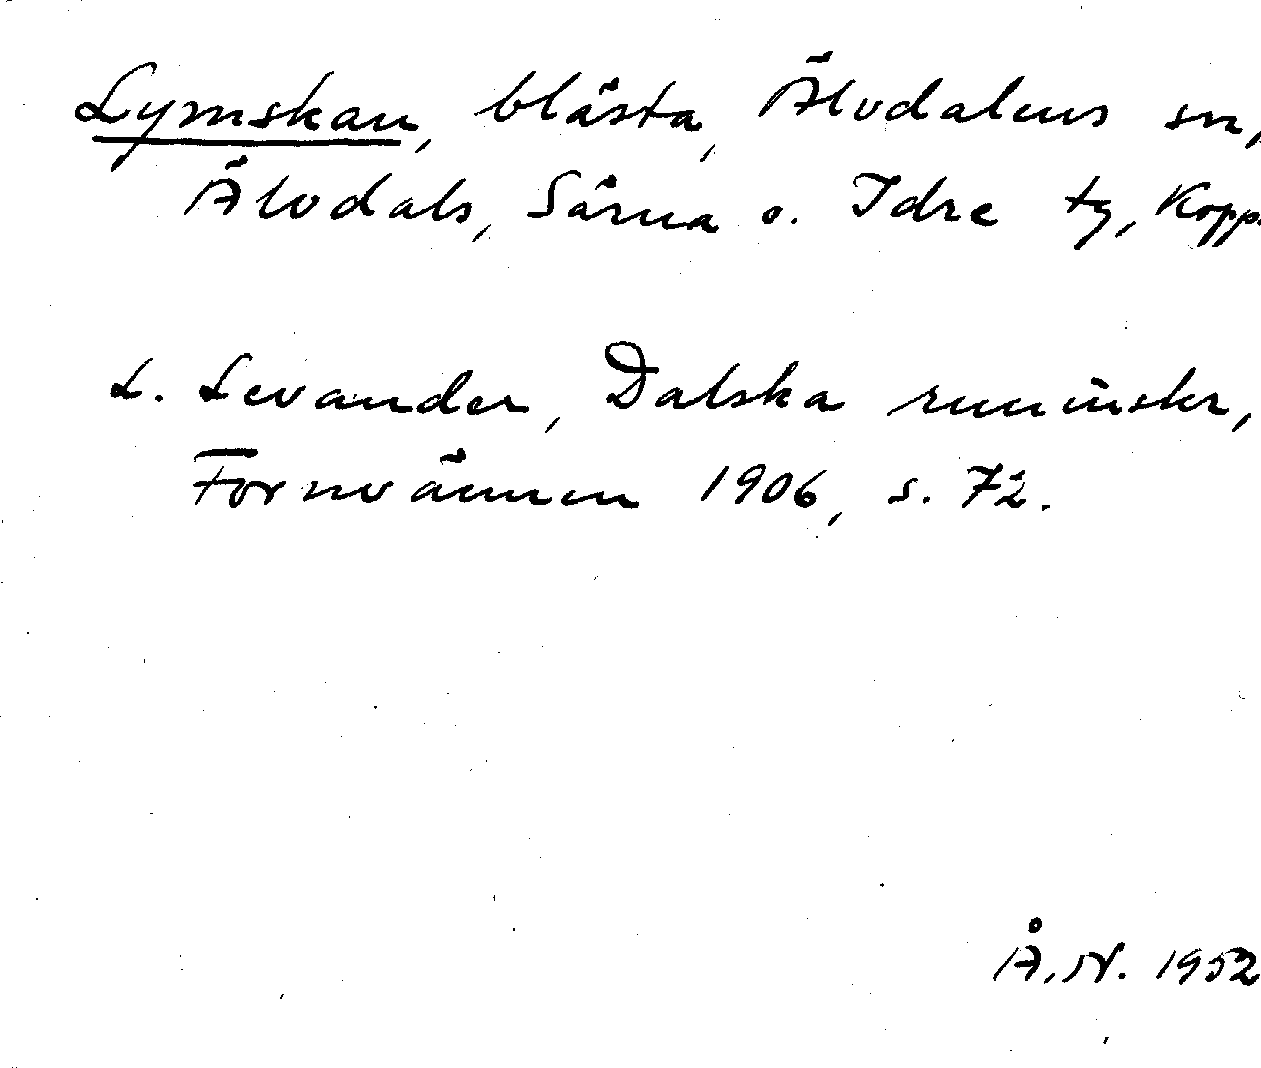 Lymskan, blåsta, Älvdalens sn,
Älvdals, Särna o. Idre tg, Kopp.
L. Levander, Dalska runinskr,
Fornvännen 1906, s. 72.
Å. N. 1952